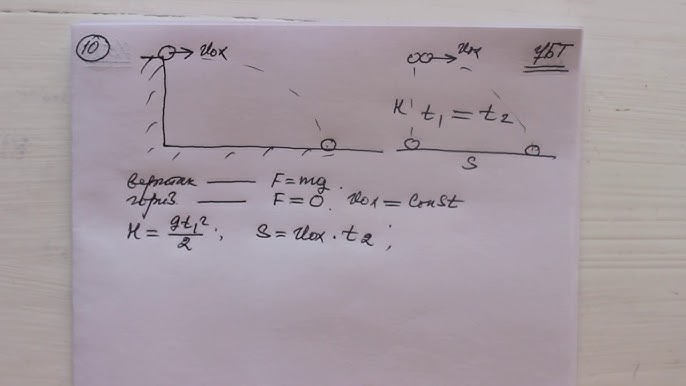 10
υox
υox
УБТ
H
t₁ = t₂
S
вертик — F = mg.
гориз — F = 0. υox = Const
H = gt₁²/2; S = υox · t₂;